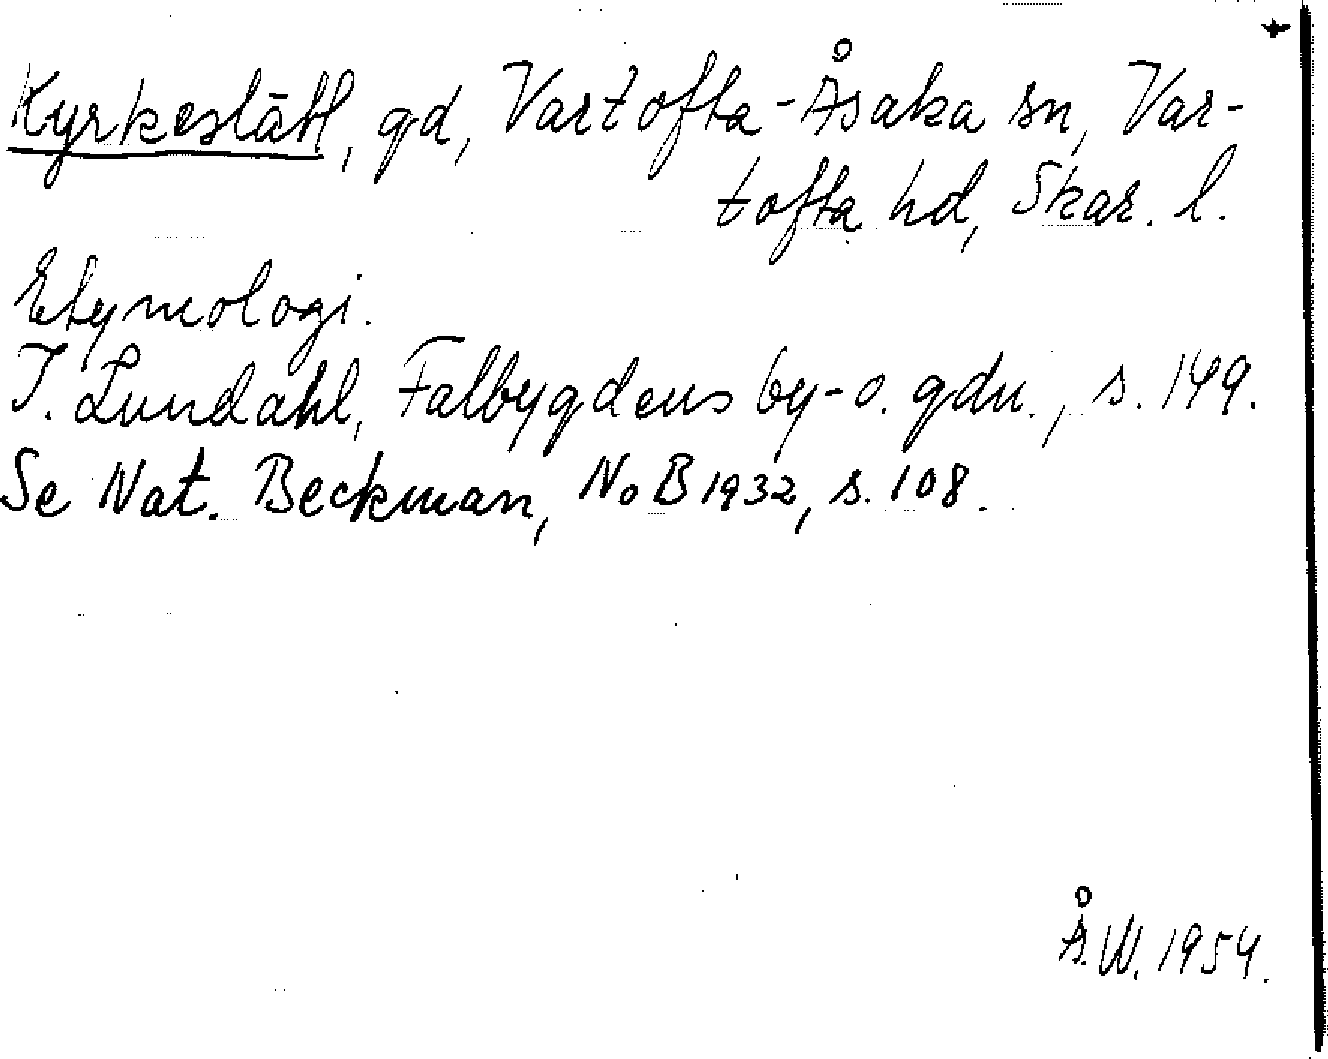 Kyrkestätt, gd, Vartofta-Åsaka sn, Var-
tofta hd, Skar. l.
Etymologi.
I. Lundahl, Falbygdens by- o. gdn., s. 149.
Se Nat. Beckman, NoB 1932, s. 108.
Å.W. 1954.